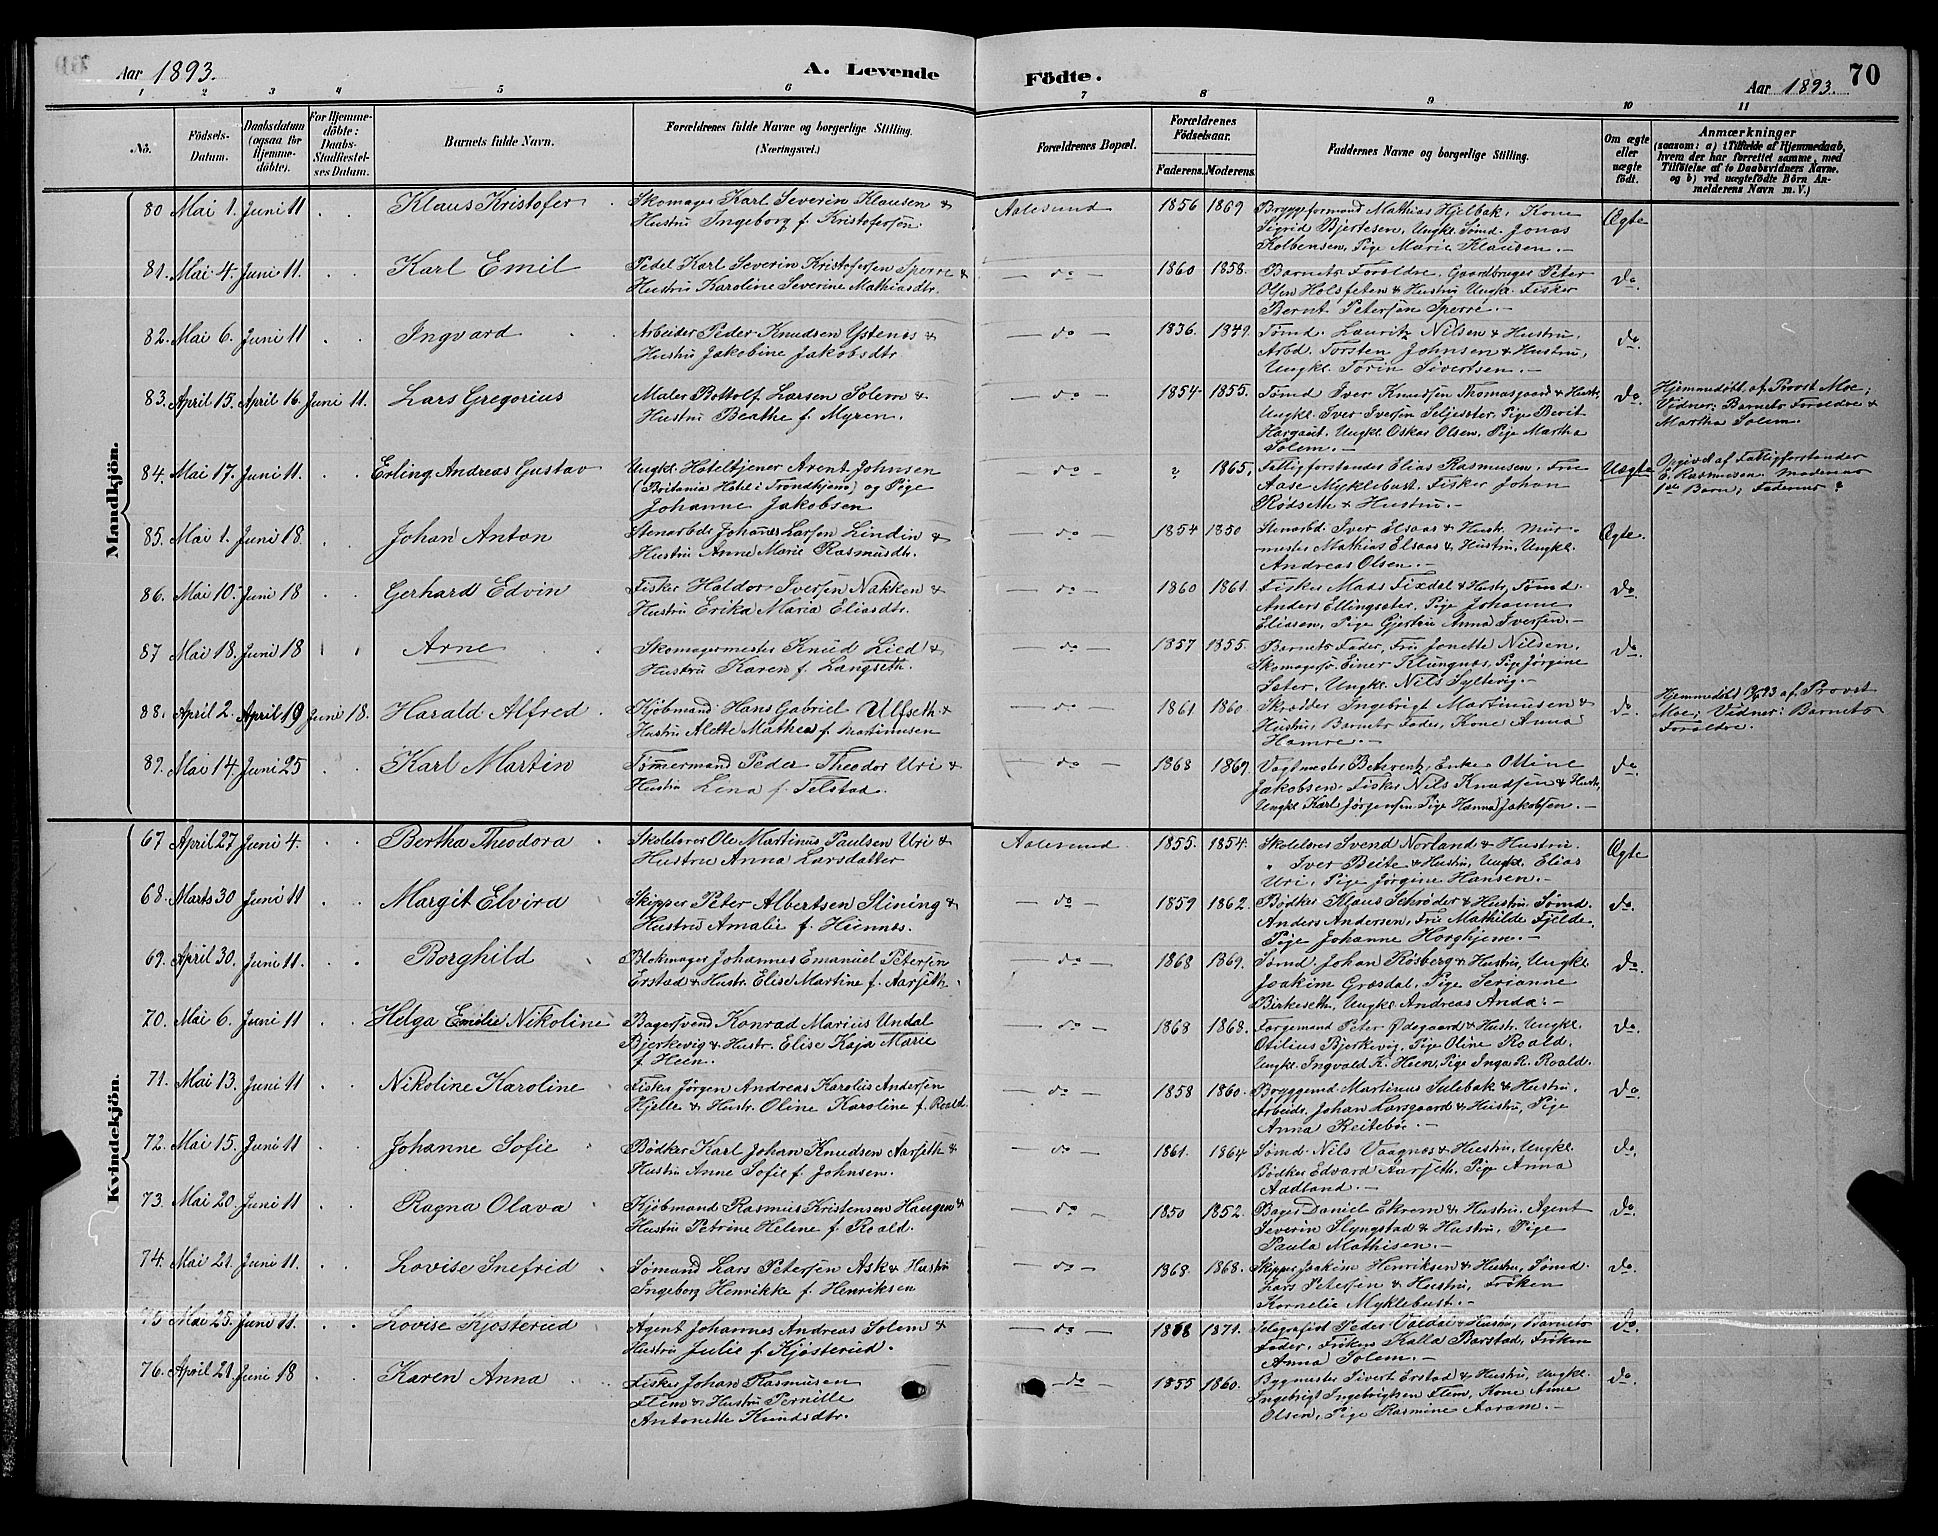 Aar 1893.
A. Levende Födte.
Aar 1893.
70
1 2 3 4 5 6 7 8 9 10 11
No.
Födsels-Datum.
Daabsdatum (ogsaa for Hjemme-döbte).
For Hjemme-döbte: Daabs-Stadfæstel-ses Datum.
Barnets fulde Navn.
Forældrenes fulde Navne og borgerlige Stilling. (Næringsvei.)
Forældrenes Bopæl.
Forældrenes Födselsaar.
Faderens. Moderens.
Faddernes Navne og borgerlige Stilling.
Om ægte eller uægte födt.
Anmærkninger
(saasom: a) i Tilfælde af Hjemmedaab, hvem der har forrettet samme, med Tilföielse af to Daabsvidners Navne, og b) ved uægtefödte Börn An-melderens Navn m. V.)
Mandkjön.
80 Mai 1. Juni 11 Klaus Kristofer
Skomager Karl Severin Klausen &
Hustru Ingeborg f. Kristofersen.
Aalesund 1856 1869
Bryggeformand Mathias Hjelbak, Kone
Sigrid Bjertesen, Ungkl. Sømd. Jonas
Kolbensen, Pige Marie Klausen.
Ægte
81. Mai 4. Juni 11. Karl Emil
Pedel Karl Severin Kristofersen Sperre &
Hustru Karoline Severine Mathiasdtr.
do 1860 1858.
Barnets Foreldre, Gaardbruger Peter
Olsen Holsfeten & Hustru Ungkl. Fisker
Bernt Petersen Sperre.
do
82. Mai 6. Juni 11 Ingvard
Arbeider Peder Knudsen Ystenes &
Hustru Jakobine Jakobsdtr
do 1836. 1849.
Tømd. Lauritz Nilsen & Hustru,
Arbd. Torsten Johnsen & Hustru,
Ungkl. Torin Sivertsen.
do
83. April 15. April 16. Juni 11. Lars Gregorius
Maler Bottolf Larsen Solem &
Hustru Beathe f. Myren.
do 1854. 1855.
Tømd Iver Knudsen Thomasgaard & Hustr,
Ungkl. Iver Iversen Seljeseter, Pige Berit
Hargaut, Ungkl. Oskar Olsen, Pige Martha
Solem.
do
Hjemmedøbt af Provst Moe;
Vidner: Barnets Foreldre &
Martha Solem.
84. Mai 17. Juni 11. Erling Andreas Gustav
Ungkl. Hoteltjener Arent Johnsen
(Britania Hotel i Trondhjem) og Pige
Johanne Jakobsen
do ? 1865.
Fattigforstander Elias Rasmusen, Frue
Aase Myklebust, Fisker Johan
Rødseth & Hustru.
Uægte
Opgivet af Fattigforstander
E. Rasmusen. Moderens
1ste Barn; Faderens ?
85. Mai 1. Juni 18. Johan Anton
Stenarbeid. Johanes Larsen Lindin &
Hustru Anne Marie Rasmusdtr.
do 1854 1850
Stenarbd. Iver Elsaas & Hustr. Mur-
mester Mathias Elsaas & Hustru, Ungkl.
Andreas Olsen.
Ægte.
86. Mai 10. Juni 18 Gerhard Edvin
Fisker Haldor Iversen Nakken &
Hustru Erika Maria Eliasdtr.
do 1860 1861.
Fisker Mads Fixdel & Hustr, Tømd.
Anders Ellingseter, Pige Johanne
Eliasen, Pige Gjertru Anna Iversen.
do
87 Mai 18. Juni 18 Arne
Skomagermester Knud Lied &
Hustru Karen f. Langseth.
do 1857 1855.
Barnets Fader, Fru Jonette Nilsen,
Skomagersv. Einer Klungnes, Pige Jørgine
Seter, Ungkl. Nils Syltevig.
do
88. April 2. April 19 Juni 18. Harald Alfred
Kjøbmand Hans Gabriel Ulfseth &
Hustru Alette Mathea f. Martinusen
do 1861 1860
Skræder Ingebrigt Martinusen &
Hustru, Barnets Fader, Kone Anna
Hamre.
do
Hjemmedøbt 19/4 93 af Provst
Moe; Vidner: Barnets
Foreldre.
89. Mai 14. Juni 25 Karl Martin
Tømmermand Peder Theodor Uri &
Hustru Lena f. Telstad.
do 1868 1869.
Vagtmester Beverentz, Enke Ottine
Jakobsen, Fisker Nils Knudsen & Hustr,
Ungkl. Karl Jørgensen, Pige Hanna Jakobsen.
do
Kvindekjön.
67 April 27 Juni 4. Bertha Theodora
Skolelærer Ole Martinus Paulsen Uri &
Hustru Anna Larsdatter
Aalesund 1855. 1854.
Skolelærer Svend Norland & Hustru.
" Iver Beite & Hustru, Ungkl. Elias
Uri, Pige Jørgine Hansen.
Ægte
68. Marts 30 Juni 11 Margit Elvira
Skipper Peter Albertsen Slining &
Hustru Amalie f. Hennes.
do 1859 1862.
Bødker Klaus Schrøder & Hustru, Sømd.
Anders Andersen, Fru Mathilde Fjelde,
Pige Johanne Horghjem.
do
69. April 30. Juni 11. Borghild
Blokmager Johannes Emanuel Petersen
Erstad & Hustr. Elise Martine f. Aarseth.
do 1868 1869.
Sømd. Johan Rosberg & Hustru, Ungkl.
Joakim Græsdal, Pige Serianne
Birkeseth, Ungkl. Andreas Anda.
do
70. Mai 6. Juni 11 Helga Emelie Nikoline
Bagersvend Konrad Marius Undal
Bjerkevig & Hustr. Elise Kaja Marie
f. Heen.
do 1868 1868.
Forgemand Peter Ødegaard & Hustr. Ungkl.
Otilius Bjerkevig, Pige Oline Roald.
Ungkl. Ingvald K. Heen, Pige Inga R. Roald.
do
71. Mai 13. Juni 11 Nikoline Karoline
Fisker Jørgen Andreas Karolius Andersen
Hjelle & Hustr. Oline Karoline f. Roald.
do 1858 1860.
Bryggemd Martinus Sulebak & Hustru.
Arbeidr. Johan Larsgaard & Hustru, Pige
Anna Reitebøe.
do
72. Mai 15. Juni 11 Johanne Sofie
Bødker Karl Johan Knudsen Aarseth &
Hustru Anne Sofie f. Johnsen.
do 1861. 1864
Sømd. Nils Vaagnes & Hustru, Ungkl.
Bødker Edvard Aarseth, Pige Anna
Aadland.
do
73. Mai 20. Juni 11 Ragna Olava
Kjøbmand Rasmus Kristensen Haugen &
Hustru Petrine Helene f. Roald.
do 1850 1852.
Bager Daniel Ekrem & Hustru, Agent
Severin Slyngstad & Hustru, Pige
Paula Mathisen.
do
74. Mai 21. Juni 11. Lovise Snefrid
Sømand Lars Petersen Ask & Hustru
Ingeborg Henrikke f. Henriksen
do 1868. 1868.
Skipper Joakim Henriksen & Hustru, Sømd.
Lars Petersen & Hustru, Frøken
Kornelia Myklebust.
do
75 Mai 25. Juni 11. Lovise Kjosterud
Agent Johannes Andreas Solem &
Hustru Julie f. Kjosterud.
do 1868 1871.
Telegrafist Peder Valdal & Hustru, Barnets
Fader, Frøken Kalla Barstad, Frøken
Anna Solem.
do
76. April 21. Juni 18 Karen Anna
Fisker Johan Rasmusen
Flem & Hustru Pernille
Antonette Knudsdtr.
do 1855 1860.
Bygmester Sivert Erstad & Hustru, Ungkl.
Ingebrigt Ingebrigtsen Flem, Kone Anne
Olsen, Pige Rasmine Aaram.
do